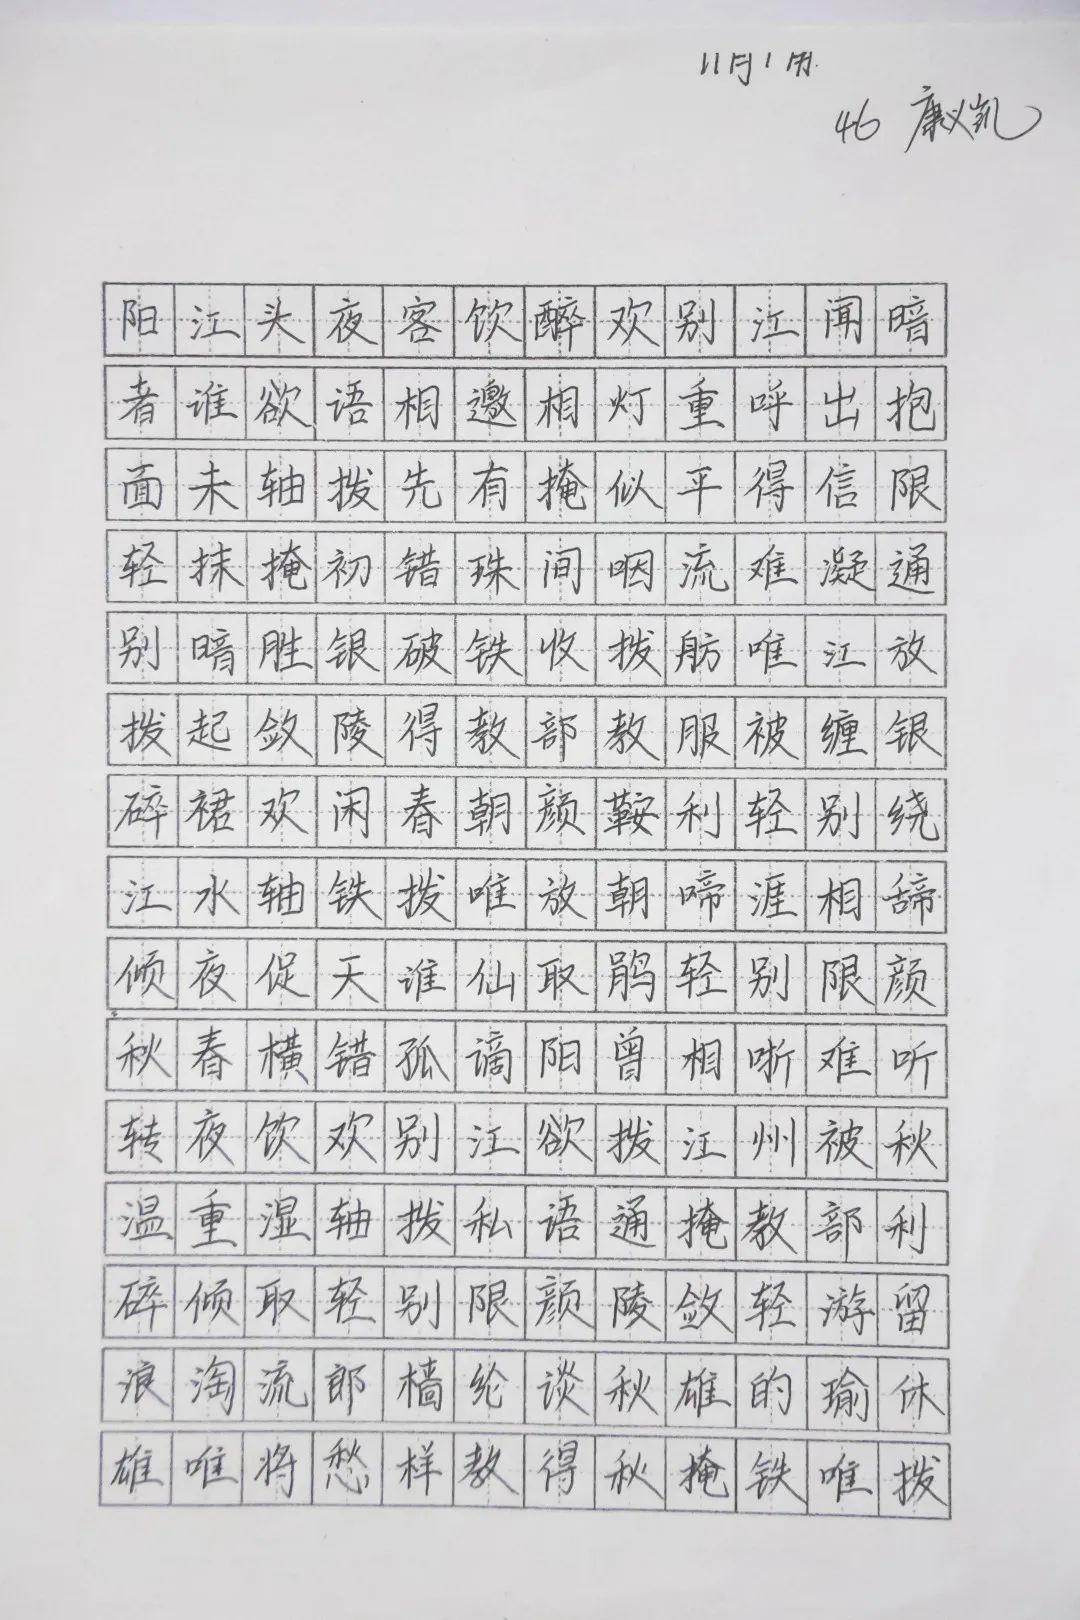 11月1日
46 康义凯
阳江头夜客饮醉欢别江闻暗
者谁欲语相邀相灯重呼出抱
面未轴拨先有掩似平得信限
轻抹掩初错珠间咽流难凝通
别暗胜银破铁收拨舫唯江放
拨起敛陵得教部教服被缠银
碎裙欢闲春朝颜鞍利轻别绕
江水轴铁拨唯放朝啼涯相辞
倾夜促天谁仙取鹃轻别限颜
秋春横错孤谪阳曾相哳难听
转夜饮欢别江欲拨江州被秋
温重湿轴拨私语通掩教部利
碎倾取轻别限颜陵敛轻游留
浪淘流郎樯纶谈秋雄的瑜休
雄唯将愁样教得秋掩铁唯拨